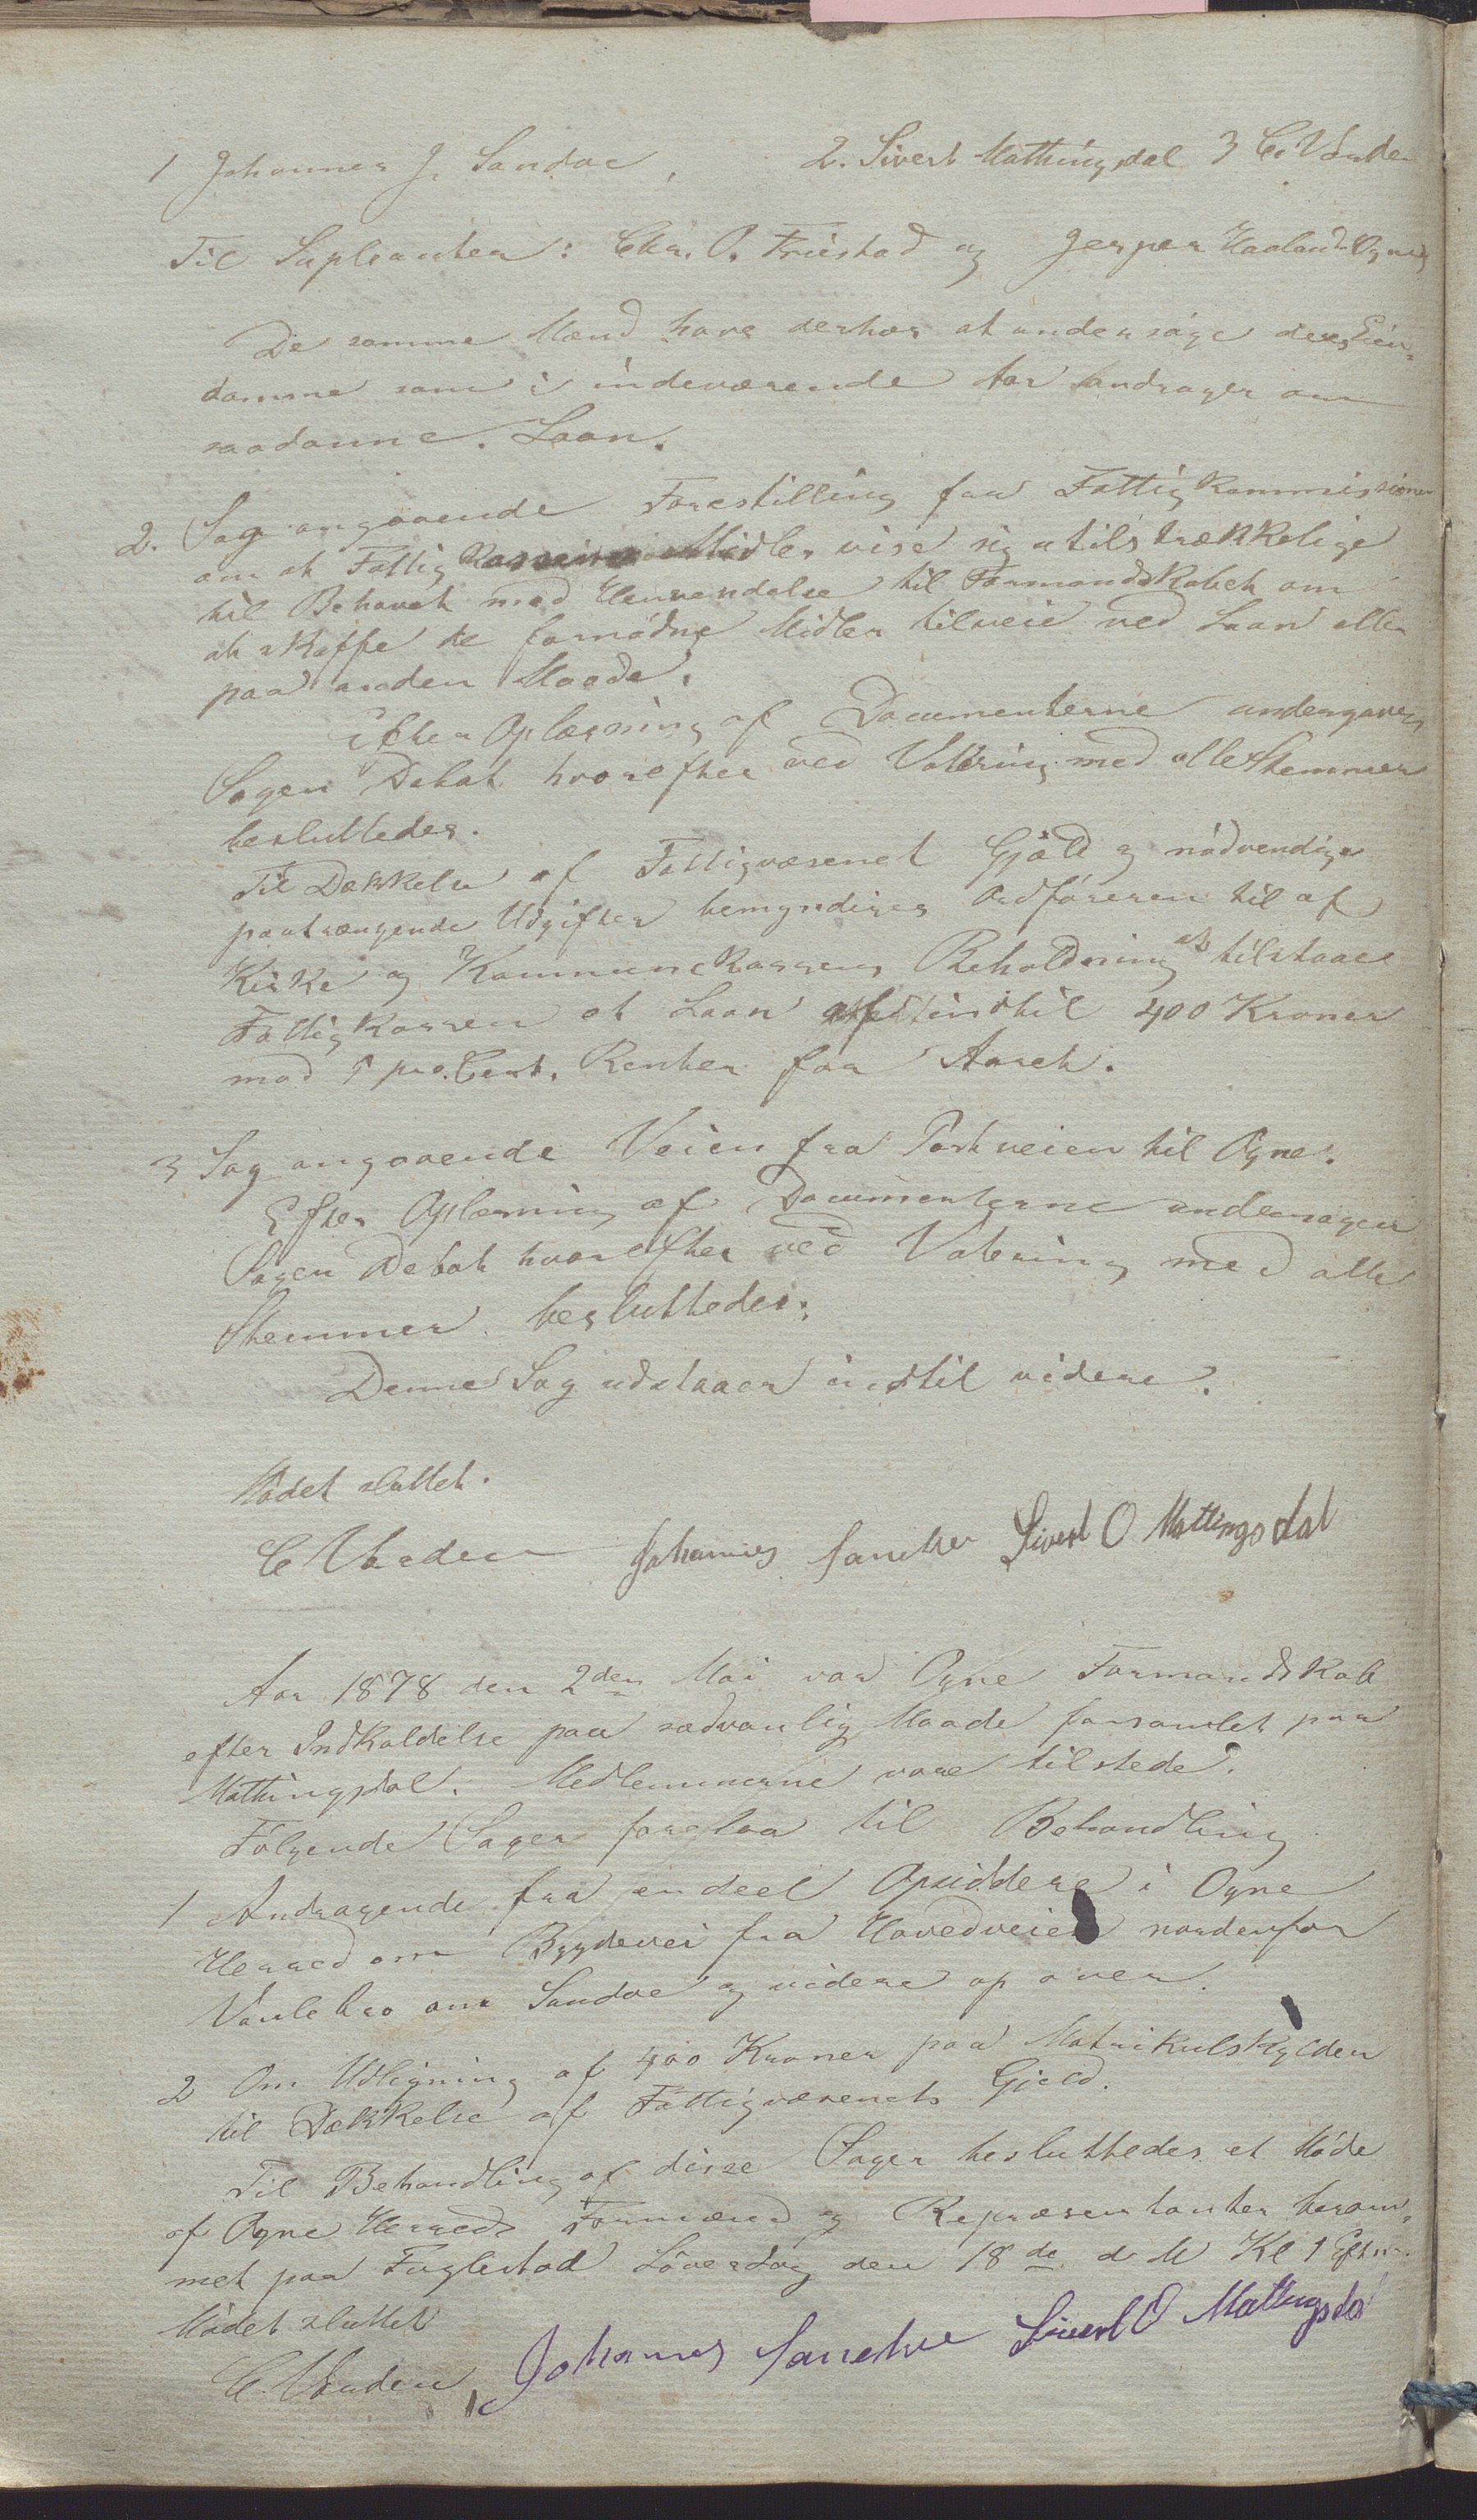 1 Johannes J. Sandve, 2. Sivert Mathingsdal 3 C. Vaulen
Til Supleanter: Chr. O. Friestad og Jesper Haaland Ogne
De samme Mænd have derhos at undersøge deres Eien-
domme som i indeværende Aar andrager om
saadanne. Laan.
2. Sag angaaende Forestilling fra Fattigkommissionen
om at Fattigkassens Midler vise sig utilstrækkelige
til Behovet med Henvendelse til Formandskabet om
at skaffe de fornødne Midler tilveie ved Laan eller
paa anden Maade.
Efter Oplæsning af Documenterne undergaves
Sagen Debat hvorefter ved Votering med alle Stemmer
besluttedes.
Til Dækkelse af Fattigvæsenet Gjæld og nødvendige
paatrængende Udgifter bemyndiges Ordføreren til af
Kirke og Kommunekassens Beholdning at tilstaae
Fattigkassen et Laan indtil 400 Kroner
mod 5 pro.Cent. Renter for Aaret.
3 Sag angaaende Veien fra Postveien til Ogne.
Efter Oplæsning af Documenterne
Sagen Debat hvorefter ved Votering med alle
Stemmer besluttedes:
Denne Sag udstaaer indtil videre.
Mødet sluttet.
C Vaulen Johannes Sandve Sivert O Mattingsdal
Aar 1878 den 2den Mai var Ogne Formandskab
efter Indkaldelse paa sædvanlig Maade forsamlet paa
Mathingsdal. Medlemmerne vare tilstede.
Følgende Sager forelaa til Behandling
1 Andragende fra endeel Opsiddere i Ogne
Herred om Bygdevei fra Hovedveien nordenfor
om Sandve og videre op over.
2 Om Udligning af 400 Kroner paa Matrikulskylden
til Dækkelse af Fattigvæsenets Gjæld.
Til Behandling af disse Sager besluttedes et Møde
af Ogne Herreds Formænd og Repræsentanter beram-
met paa Fuglestad Løverdag den 18de d M Kl 1 Efterm.
Mødet sluttet
C. Vaulen Johannes Sandve Sivert O Mattingsdal